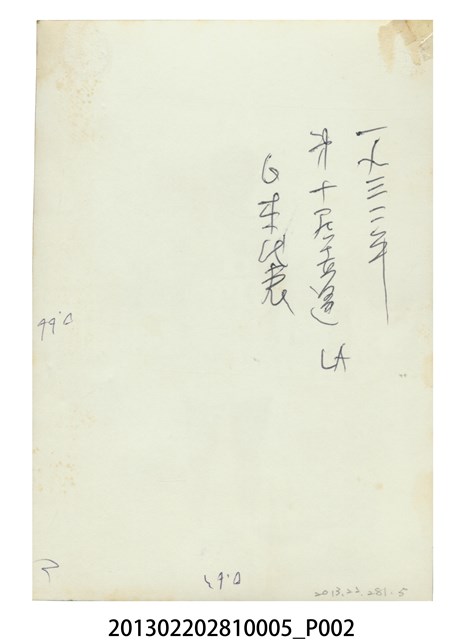 一九三二年
第十屆奧運 LA
日本代表
2013.22.281.5
201302202810005_P002